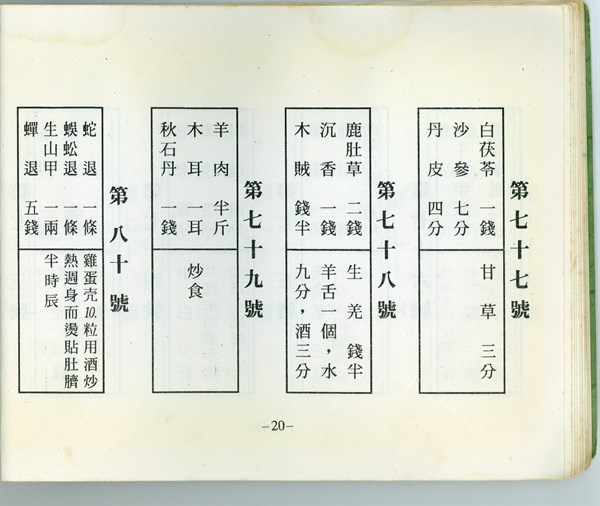 第七十七號
白茯苓 一錢
沙參 七分
丹皮 四分
甘草 三分
第七十八號
鹿肚草 二錢
沉香 一錢
木賊 錢半
生羌 錢半
羊舌一個，水
九分，酒三分
第七十九號
羊肉 半斤
木耳 一耳
秋石丹 一錢
炒食
第八十號
蛇退 一條
蜈蚣退 一條
生山甲 一兩
蟬退 五錢
雞蛋壳10.粒用酒炒
熱週身而燙貼肚臍
半時辰
–20–